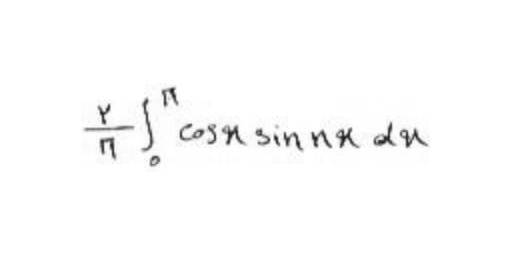 ۲/π ∫₀^π cosx sin nx dx